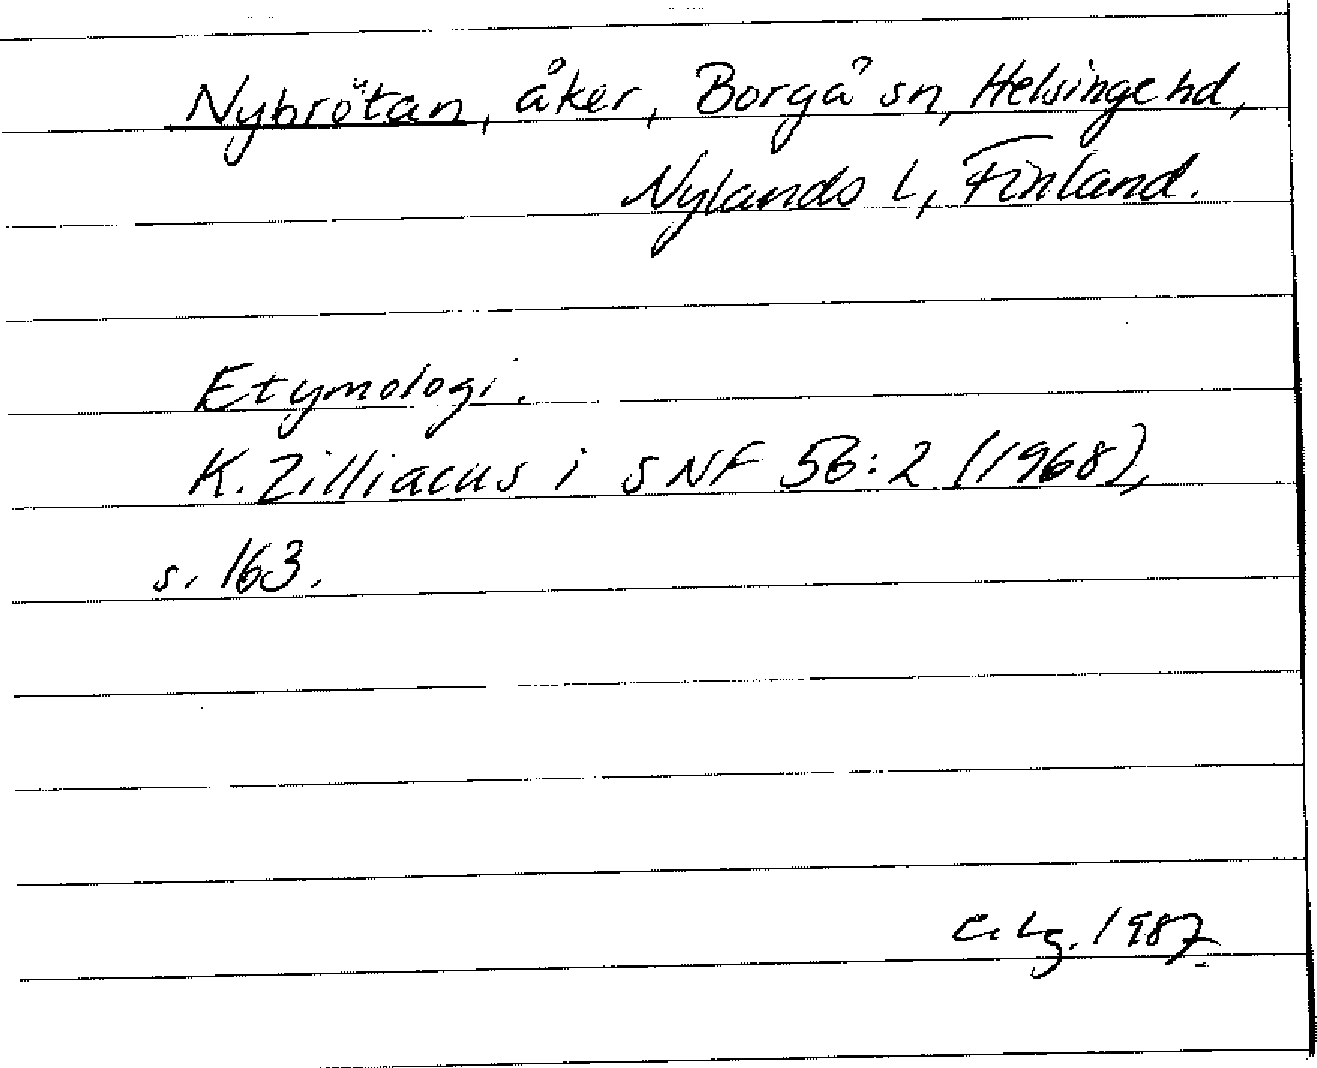 Nybrötan, åker, Borgå sn, Helsinge hd,
Nylands l, Finland.
Etymologi.
K. Zilliacus i SNF 56:2 (1968),
s. 163.
C. Lg. 1987